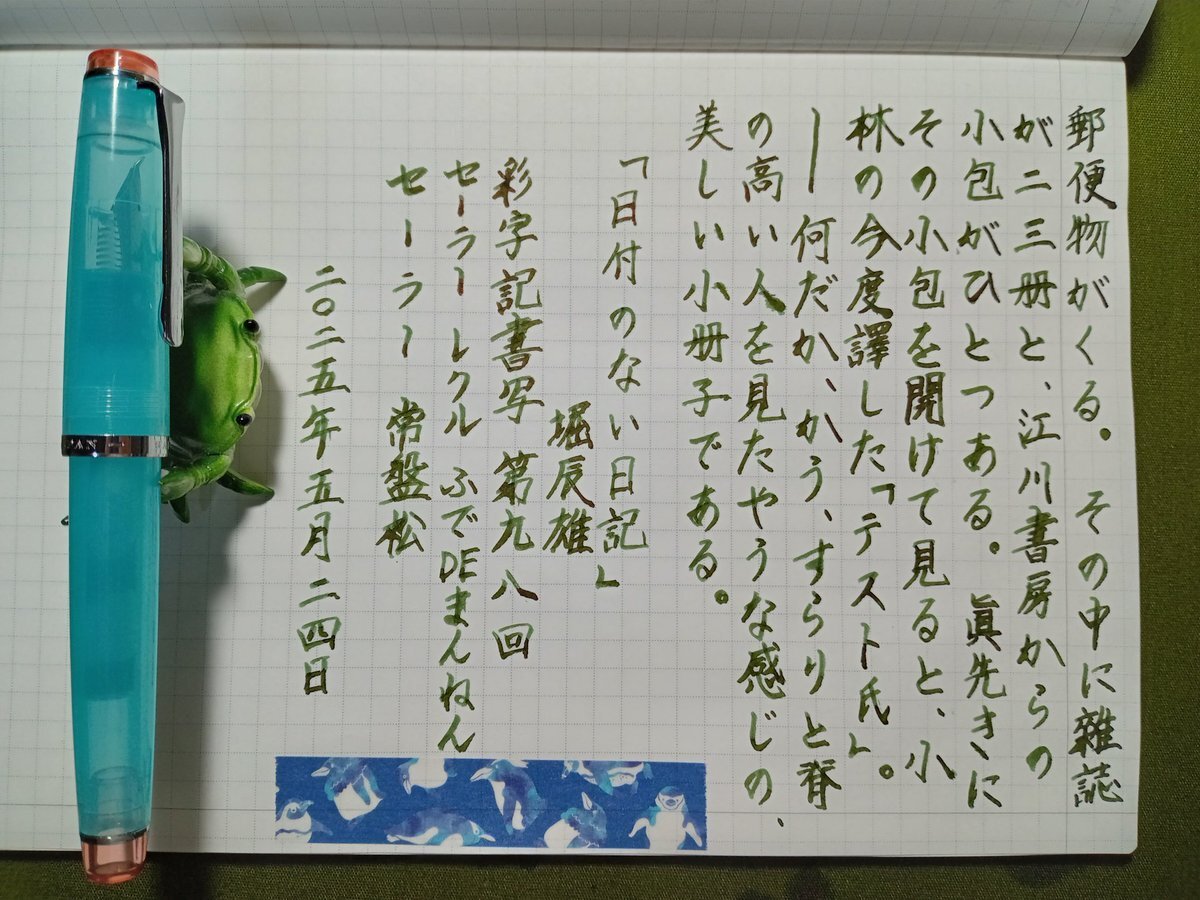 郵便物がくる。その中に雜誌
が二三册と、江川書房からの
小包がひとつある。眞先きに
その小包を開けて見ると、小
林の今度譯した「テスト氏」。
― 何だか、かう、すらりと脊
の高い人を見たやうな感じの、
美しい小册子である。
「日付のない日記」
堀辰雄
彩字記書写 第九八回
セーラー レクル ふでDEまんねん
セーラー 常盤松
二〇二五年五月二四日